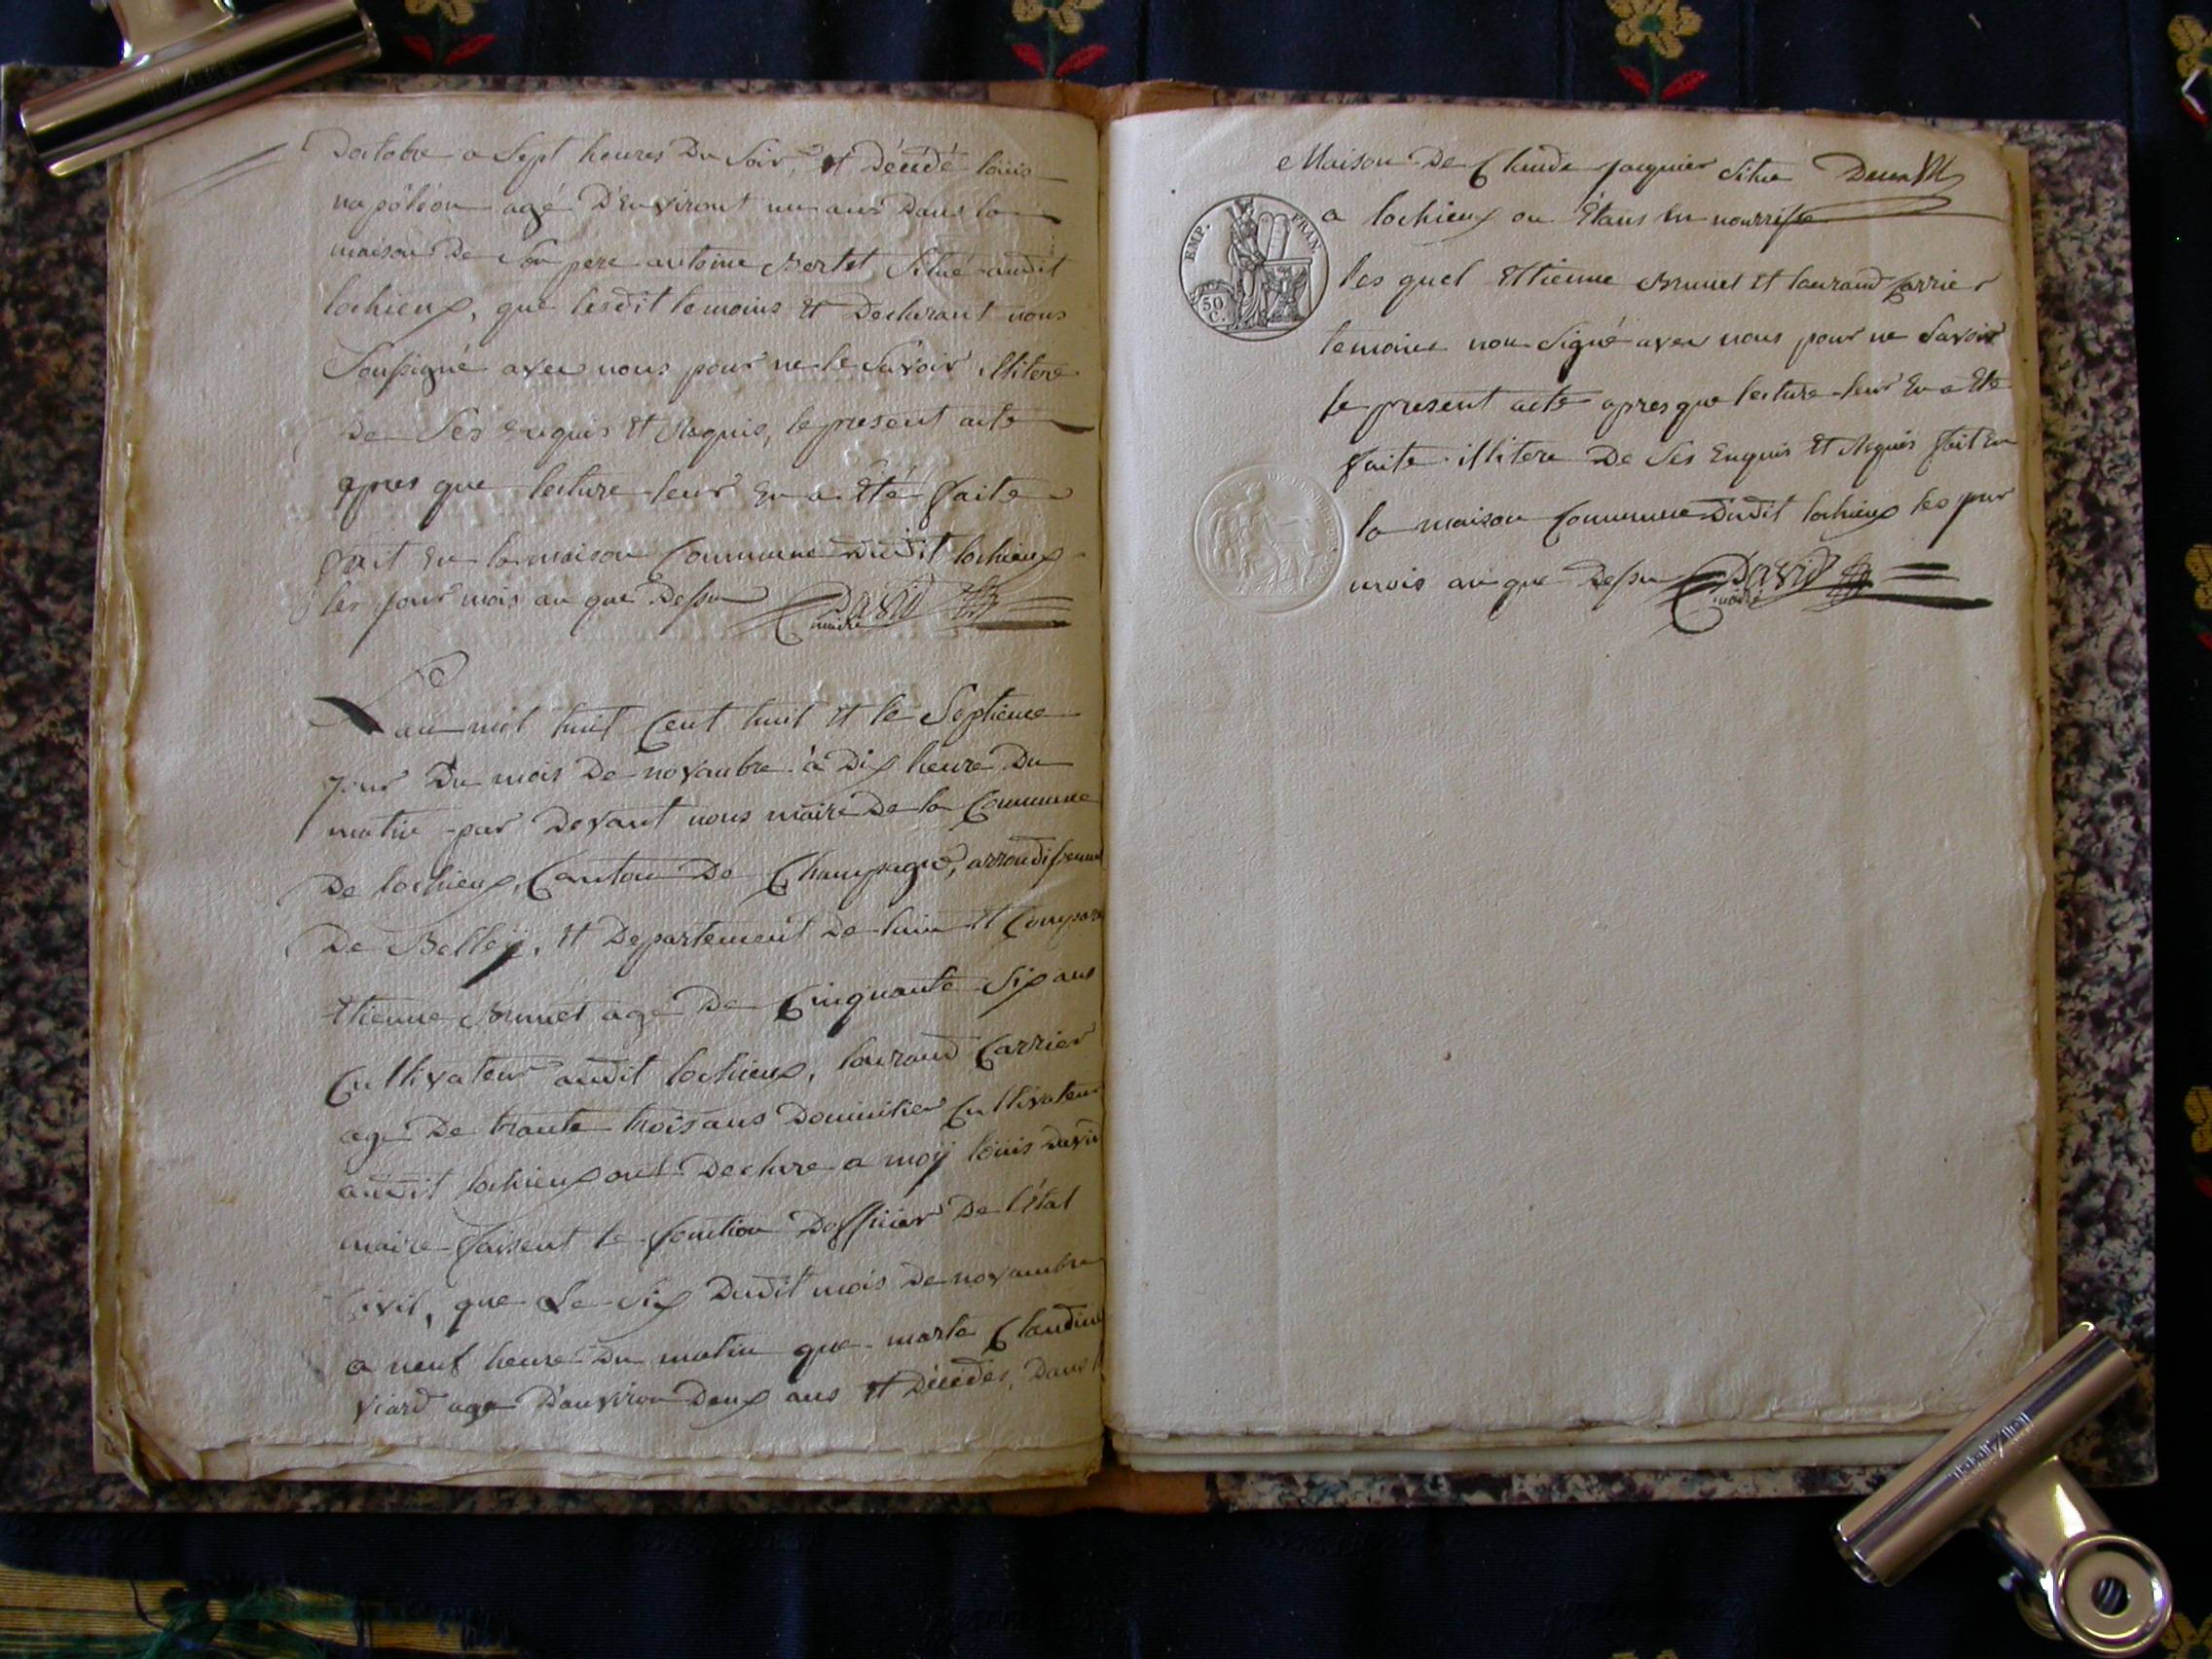 Doctobre a Sept heures Du Soir, et Décédé louis
napôléon agé D'Environt un ans Dans la
maison De Son pere antoine Bertet Situé audit
lochieux, que lesdit temoins et Declarant nous
Soussigné avec nous pour ne le Savoir illitere
De Ses Enquis et Requis, le present acte
apres que lecture leur En a Eté faite
fait En la maison Commune dudit lochieux
les jour mois an que Dessu David
maire
Lan mil huit Cent huit et le Septieme
jour Du mois De novanbre à Dix heure Du
matin par Devant nous maire De la Commune
De lochieux, Canton De Champagne, arrondissement
De Belley, et Departement De lain et Compare
Etienne Brunet age De Cinquante Six ans
Cultivateur audit lochieux, laurand Carrier
age De trante trois ans Domicilier Cultivateur
audit lochieux ont Declare a moÿ louis david
maire faisent le fonction Dofficier De l'état
Civil, que Le Six Dudit mois De novambre
a neuf heure Du matin que marte Claudine
Viard age D'anviron Deux ans et Décédes, Dans l
Maison De Claude jacquier Situe
a lochieux ou Etans En nourrisse
les quel Ettienne Brunet et laurand Carrier
temoins non Signé avec nous pour ne Savoir
le present acte apres que lecture leur En a Ete
faite illitere De Ses Enquis et Requis fait En
la maison Commune Dudit lochieux les jour
mois an que Dessu David
maire
EMP. FRAN.
50
C.